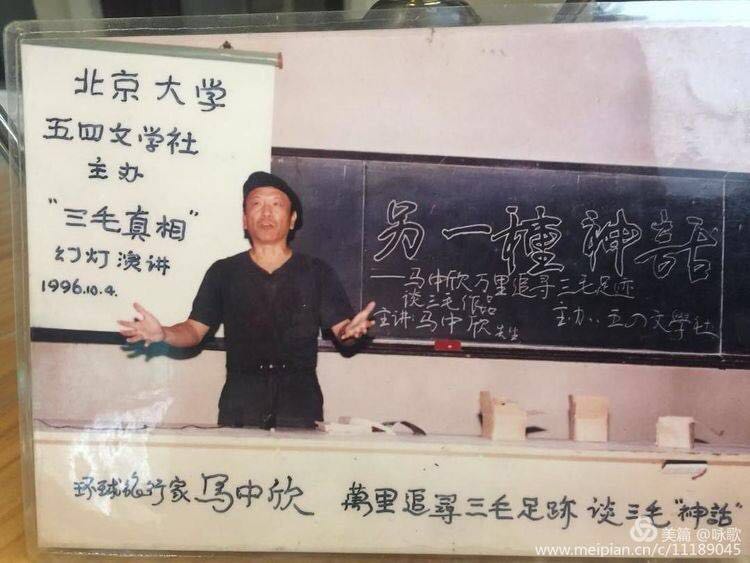 北京大学
五四文学社
主办
"三毛真相"
幻灯演讲
1996.10.4.
另一種神話
——马中欣万里追寻三毛足迹
谈三毛作品
主讲:马中欣先生
主办:五四文學社
环球旅行家 马中欣 萬里追尋三毛足跡 谈三毛"神話"
美篇 @咏歌
www.meipian.cn/c/11189045